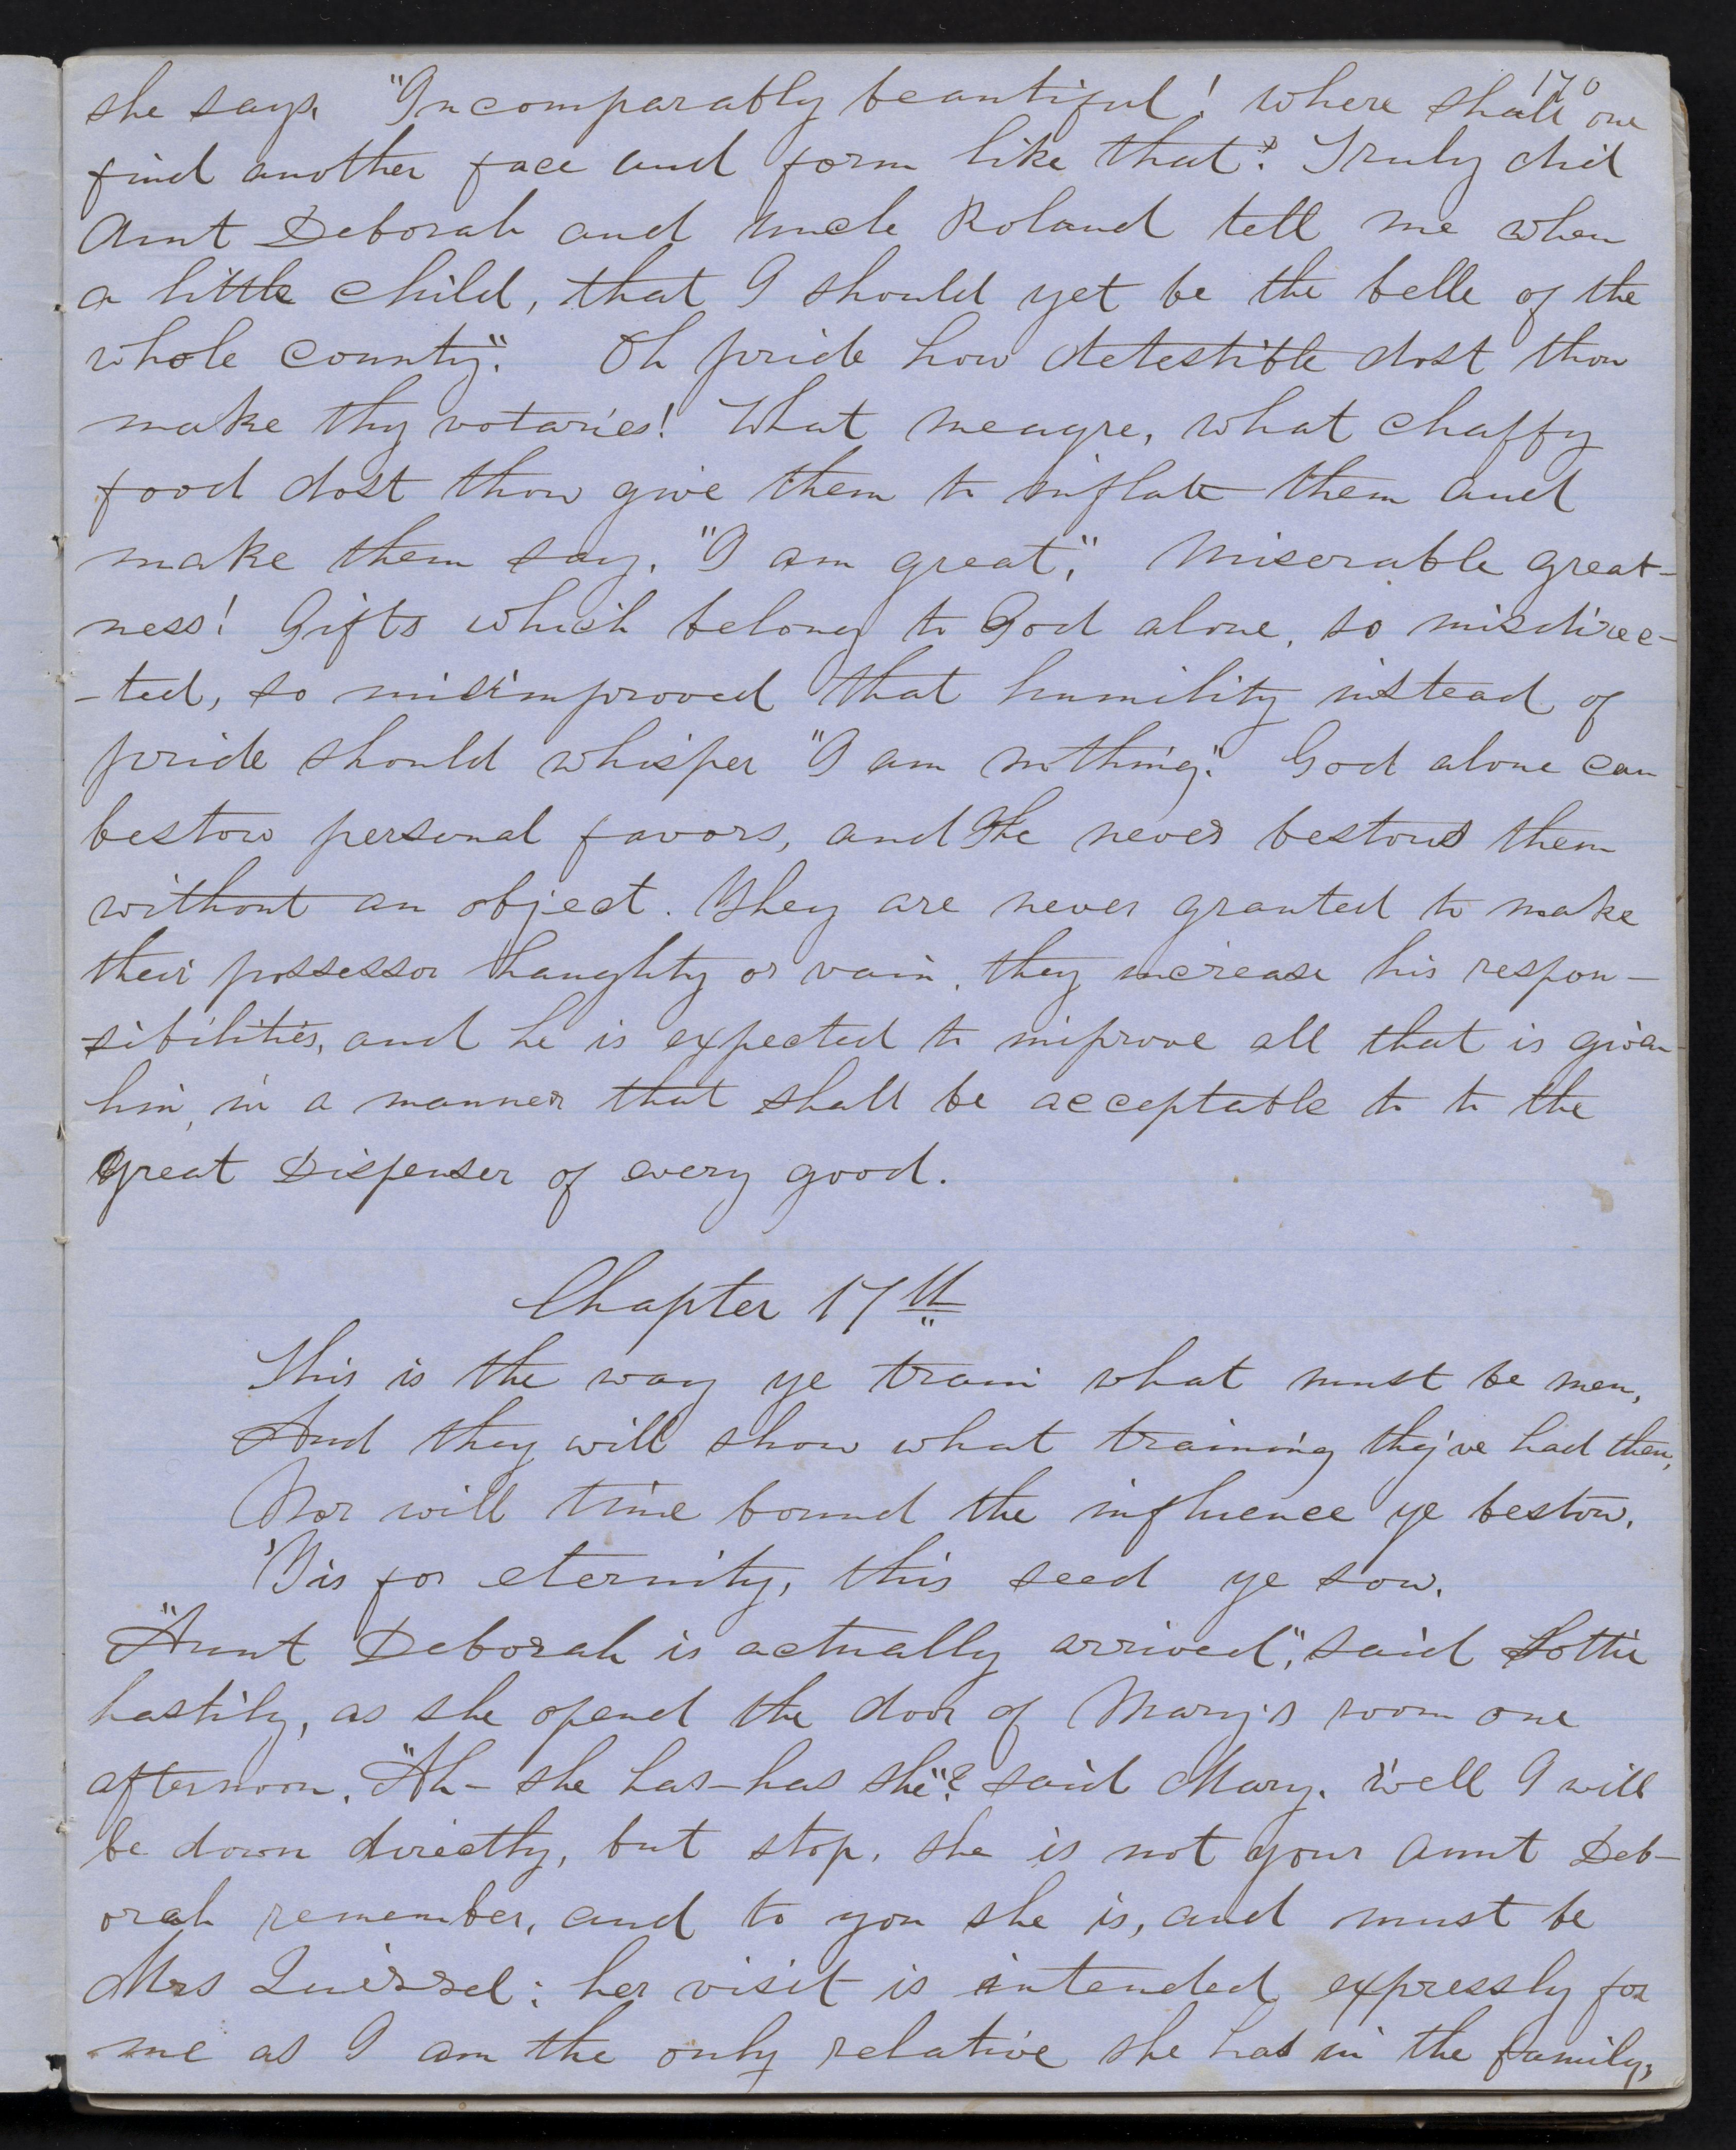 170
she says, "Incomparably beautiful! where shall one
find another face and form like that? Truly did
Aunt Deborah and uncle Roland tell me when
a little child, that I should yet be the belle of the
whole county". Oh pride how detestible dost thou
make thy votaries! What meagre, what chaffy
food dost thou give them to inflate them and
make them say, "I am great," Miserable great-
ness! Gifts which belong to God alone, so misdirec-
-ted, so misimproved that humility instead of
pride should whisper "I am nothing". God alone can
bestow personal favors, and He never bestows them
without an object. They are never granted to make
their possessor haughty or vain, they increase his respon-
sibilities, and he is expected to improve all that is given
him, in a manner that shall be acceptable to to the
Great Dispenser of every good.
Chapter 17th
This is the way ye train what must be men,
And they will show what training they've had then,
Nor will time bound the influence ye bestow,
'Tis for eternity, this seed ye sow.
"Aunt Deborah is actually arrived", said Lottie
hastily, as she opend the door of Mary's room one
afternoon. "Ah- she has-has she"? said Mary. "well I will
be down directly, but stop, she is not your aunt Deb-
orah remember, and to you she is, and must be
Mrs Quirrel: her visit is intended expressly for
me as I am the only relative she has in the family,